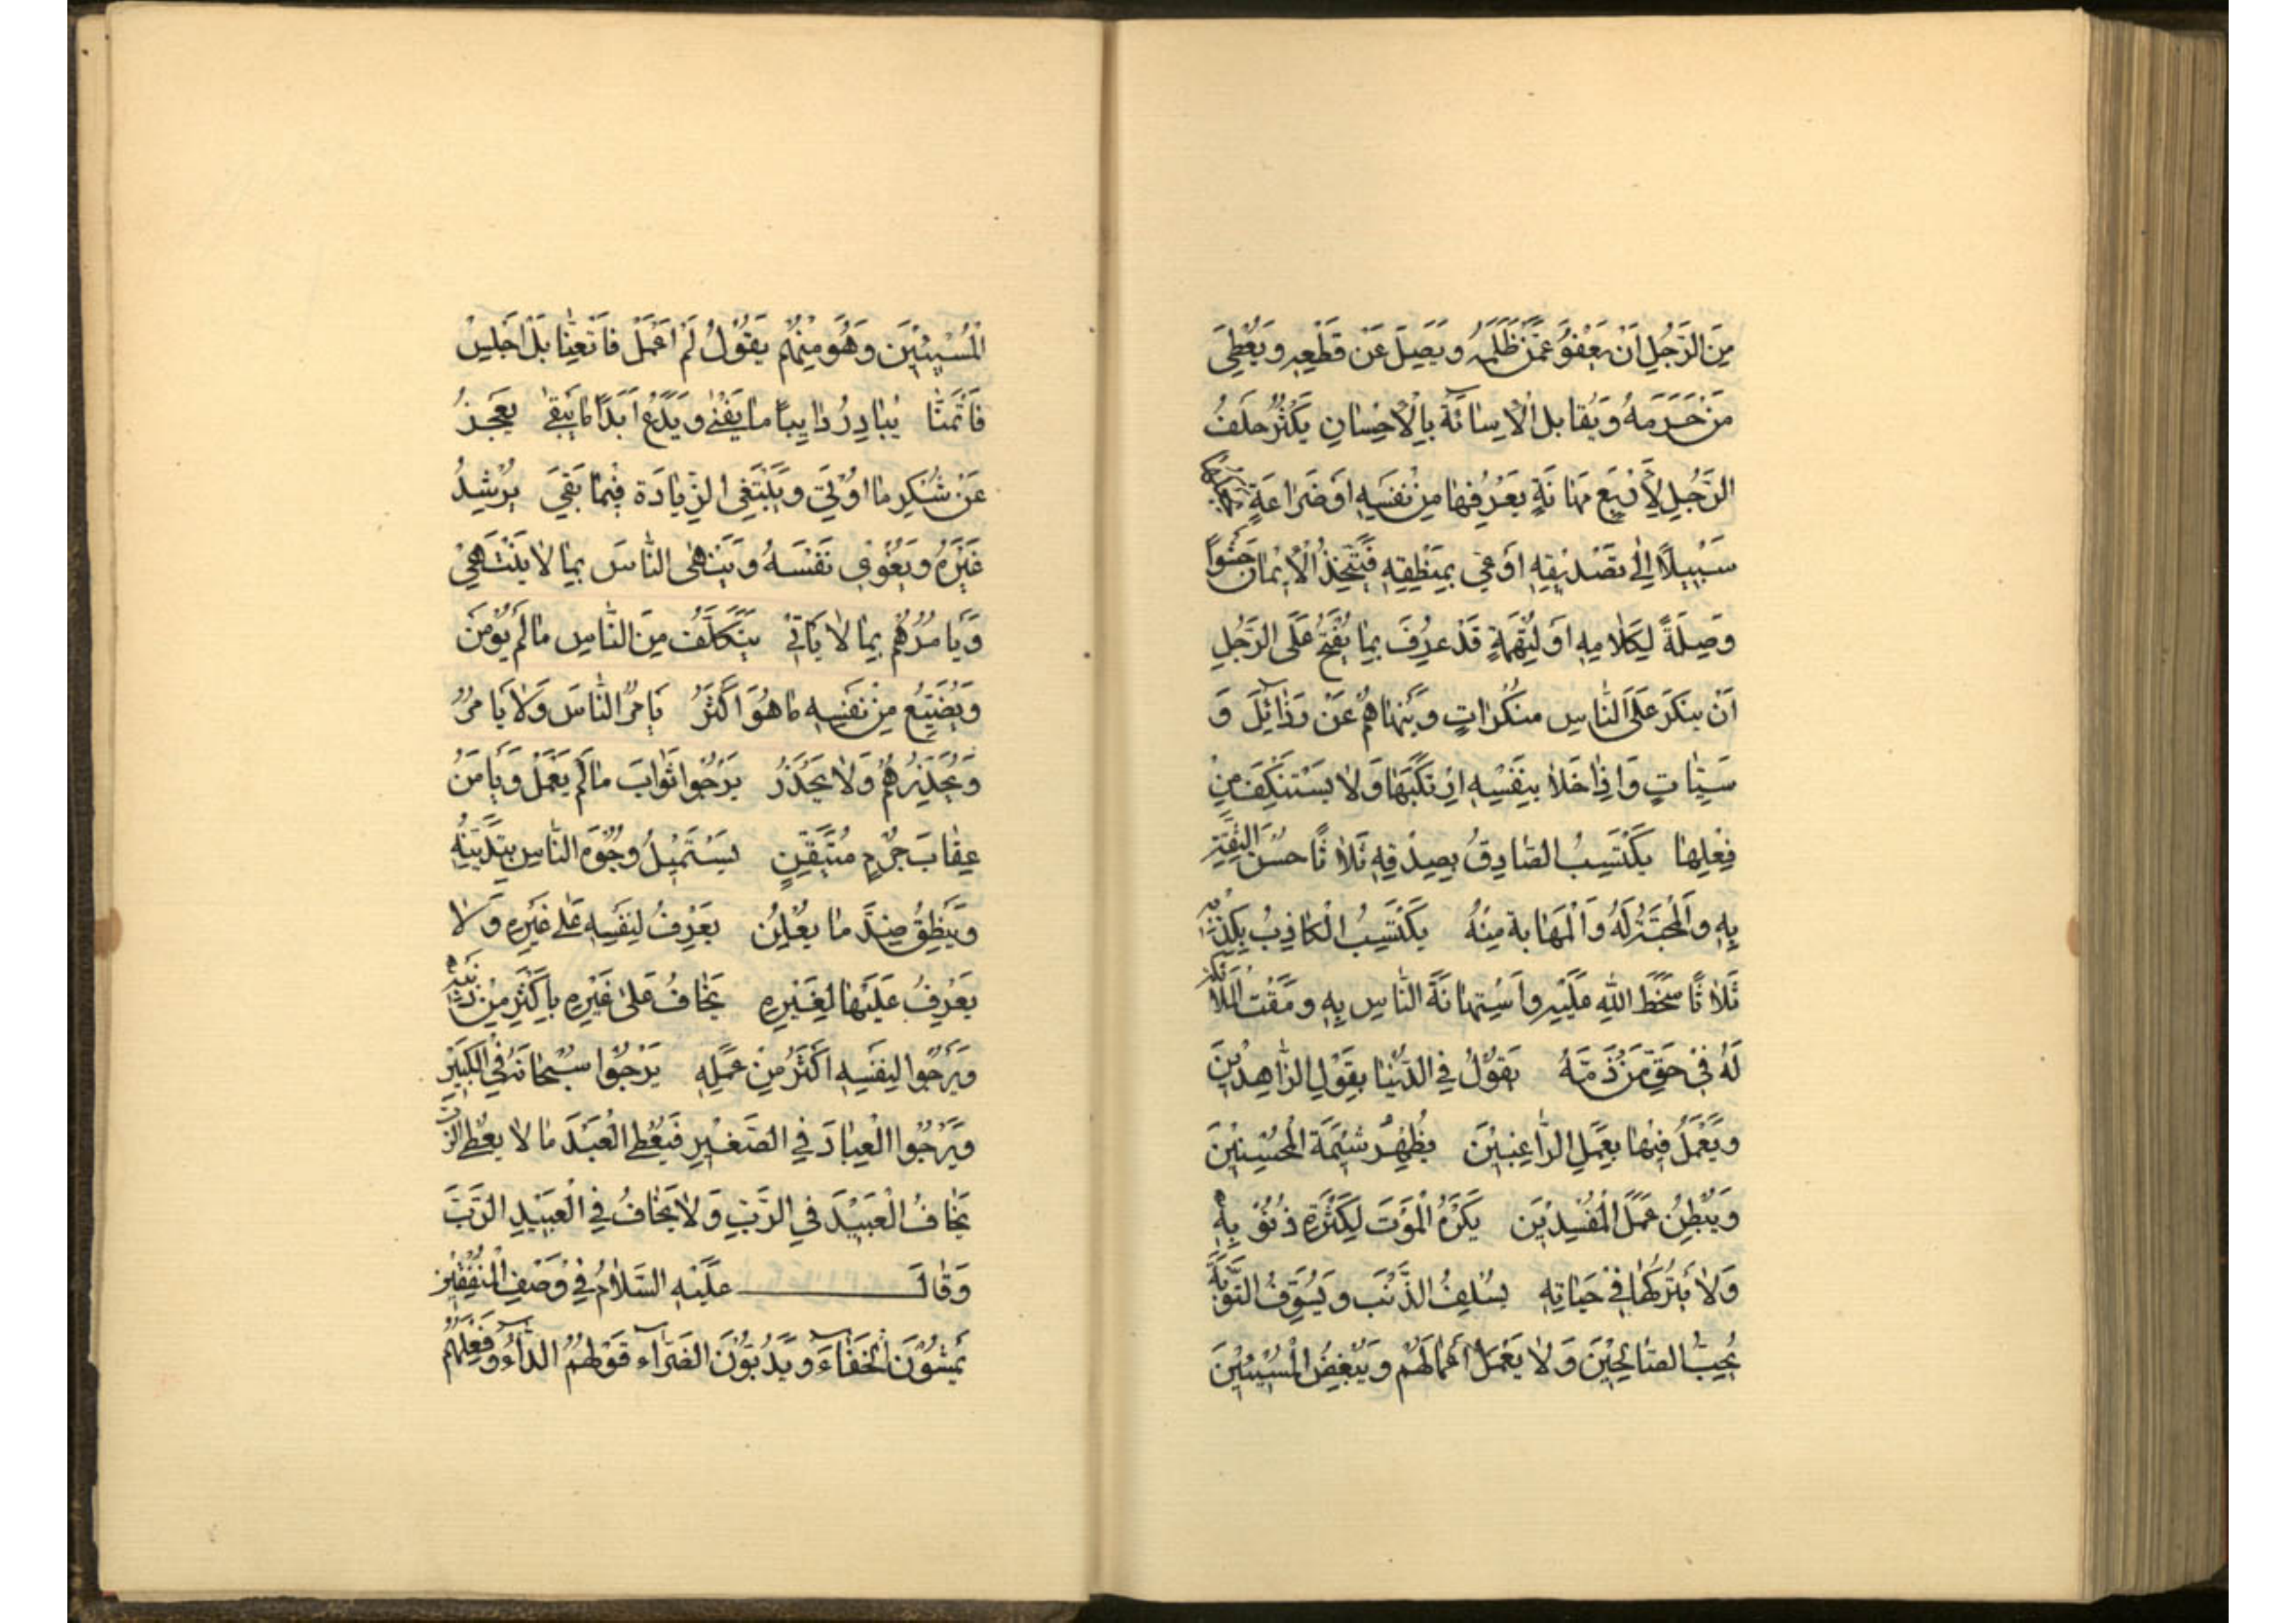 مِنَ الرَّجُلِ اَنْ يَعْفُوَ عَمَّنْ ظَلَمَهُ وَيَصِلَ مَنْ قَطَعَهُ وَيُعْطِيَ
مَنْ حَرَمَهُ وَيُقَابِلَ الْاِسَائَةَ بِالْاِحْسَانِ يَكْثُرُ حَلَفُ
الرَّجُلِ لِاَرْبَعٍ مَهَانَةٍ يَعْرِفُهَا مِنْ نَفْسِهِ اَوْ ضَرَاعَةٍ
سَبِيلًا اِلٰى تَصْدِيقِهِ اَوْ عِيٍّ بِمَنْطِقِهِ فَيَتَّخِذُ الْاَيْمَانَ حَشْوًا
وَصِلَةً لِكَلَامِهِ اَوْ لِتُهَمَةٍ قَدْ عُرِفَ بِهَا يَقْبُحُ عَلَى الرَّجُلِ
اَنْ يُنْكِرَ عَلَى النَّاسِ مُنْكَرَاتٍ وَيَنْهَاهُمْ عَنْ رَذَائِلَ وَ
سَيِّئَاتٍ وَاِذَا خَلَا بِنَفْسِهِ ارْتَكَبَهَا وَلَا يَسْتَنْكِفُ مِنْ
فِعْلِهَا يَكْتَسِبُ الصَّادِقُ بِصِدْقِهِ ثَلَاثًا حُسْنَ الثِّقَةِ
بِهِ وَالْمَحَبَّةَ لَهُ وَالْمَهَابَةَ مِنْهُ يَكْتَسِبُ الْكَاذِبُ بِكِذْبِهِ
ثَلَاثًا سَخَطَ اللّٰهِ عَلَيْهِ وَاسْتِهَانَةَ النَّاسِ بِهِ وَمَقْتَ الْمَلَائِكَةِ
لَهُ فِي حَقِّ مَنْ ذَمَّهُ يَقُوْلُ فِي الدُّنْيَا بِقَوْلِ الزَّاهِدِينَ
وَيَعْمَلُ فِيْهَا بِعَمَلِ الرَّاغِبِيْنَ يُظْهِرُ شِيْمَةَ الْمُحْسِنِيْنَ
وَيُبْطِنُ عَمَلَ الْمُفْسِدِيْنَ يَكْرَهُ الْمَوْتَ لِكَثْرَةِ ذُنُوْبِهِ
وَلَا يَتْرُكُهَا فِي حَيَاتِهِ يُسْلِفُ الذَّنْبَ وَيُسَوِّفُ التَّوْبَةَ
يُحِبُّ الصَّالِحِيْنَ وَلَا يَعْمَلُ اَعْمَالَهُمْ وَيُبْغِضُ الْمُسِيْئِيْنَ
الْمُسِيْئِيْنَ وَهُوَ مِنْهُمْ يَقُوْلُ لَمْ اَعْمَلْ فَاَتَعَنَّا بَلْ اَجْلِسُ
فَاَتَمَنَّا يُبَادِرُ دَائِبًا مَا يَفْنٰى وَيَدَعُ اَبَدًا مَا يَبْقٰى يَعْجِزُ
عَنْ شُكْرِ مَا اُوْتِيَ وَيَبْتَغِي الزِّيَادَةَ فِيْمَا بَقِيَ يُرْشِدُ
غَيْرَهُ وَيُغْوِيْ نَفْسَهُ وَيَنْهَى النَّاسَ بِمَا لَا يَنْتَهِيْ
وَيَأْمُرُهُمْ بِمَا لَا يَاْتِيْ يَتَكَلَّفُ مِنَ النَّاسِ مَا لَمْ يُؤْمَنْ
وَيُضَيِّعُ مِنْ نَفْسِهِ مَا هُوَ اَكْثَرُ يَأْمُرُ النَّاسَ وَلَا يَأْمُرُ
وَيُحَذِّرُهُمْ وَلَا يَحْذَرُ يَرْجُوا ثَوَابَ مَا لَمْ يَعْمَلْ وَيَأْمَنُ
عِقَابَ جُرْمٍ مُتَيَقَّنٍ يَسْتَمِيْلُ وُجُوْهَ النَّاسِ بِتَدَيُّنِهِ
وَيُبْطِنُ ضِدَّ مَا يُعْلِنُ يَعْرِفُ لِنَفْسِهِ عَلٰى غَيْرِهِ وَلَا
يَعْرِفُ عَلَيْهَا لِغَيْرِهِ يَخَافُ عَلٰى غَيْرِهِ بِاَكْثَرِ مِنْ ذَنْبِهِ
وَيَرْجُوا لِنَفْسِهِ اَكْثَرَ مِنْ عَمَلِهِ يَرْجُوا سُبْحَانَهُ فِي الْكَبِيْرِ
وَيَرْجُوا الْعِبَادَ فِي الصَّغِيْرِ فَيُعْطِي الْعَبْدَ مَا لَا يُعْطِي الرَّبَّ
يَخَافُ الْعَبِيْدَ فِي الرَّبِّ وَلَا يَخَافُ فِي الْعَبِيْدِ الرَّبَّ
وَقَالَ عَلَيْهِ السَّلَامُ فِيْ وَصْفِ الْمُنَافِقِيْنَ
يَمْشُوْنَ الْخَفَاءَ وَيَدِبُّوْنَ الضَّرَاءَ قَوْلُهُمُ الدَّاءُ وَفِعْلُهُمْ